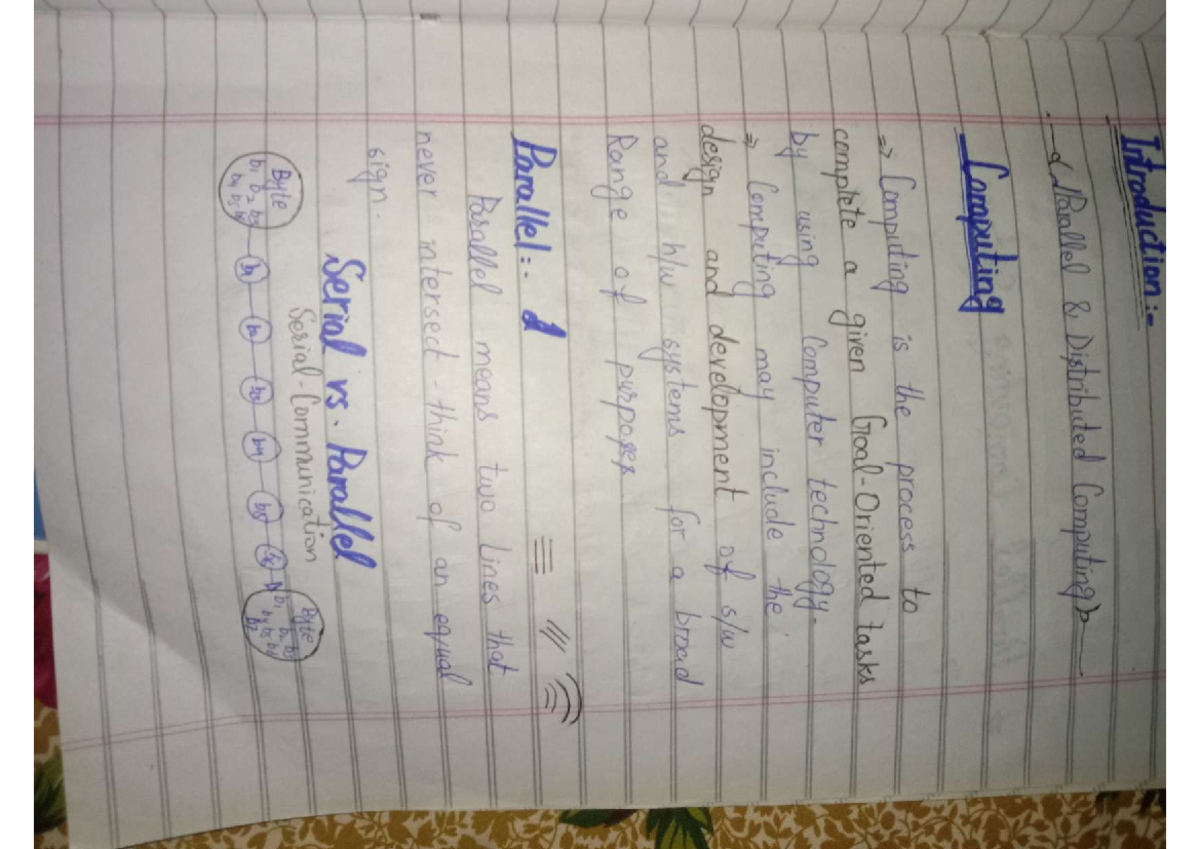 Introduction:-
Parallel & Distributed Computing
Computing
=> Computing is the process to
complete a given Goal-Oriented tasks
by using Computer technology.
=> Computing may include the
design and development of s/w
and h/w systems for a broad
Range of purposes
Parallel:-
Parallel means two Lines that
never intersect - think of an equal
sign.
Serial vs. Parallel
Serial-Communication
Byte b1 b2 b3 b4 b5 b1 b2 b3 b4 b5 Byte b1 b2 b3